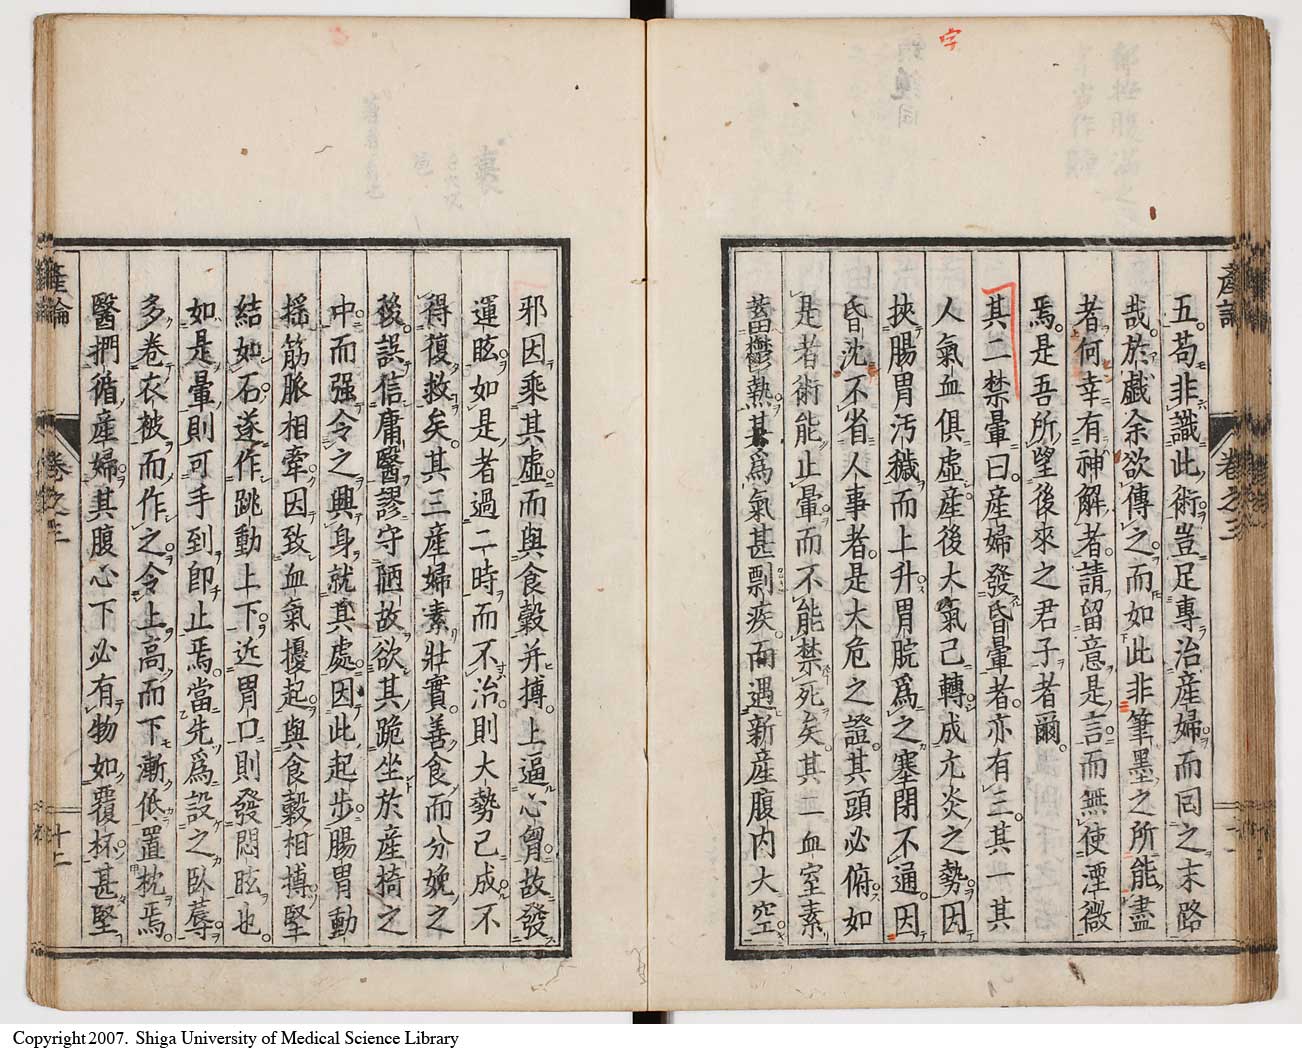 字
產論
卷之三
五苟非識此術豈足專治產婦而囘之末路
哉於戲余欲傳之而如此非筆墨之所能盡
者何幸有神解者請留意是言而無使湮微
焉是吾所望後來之君子者爾
其二禁暈曰產婦發昏暈者亦有三其一其
人氣血俱虛產後大氣已轉成亢炎之勢因
挾腸胃汚穢而上升胃脘爲之塞閉不通因
昏沈不省人事者是大危之證其頭必俯如
是者術能止暈而不能禁死矣其二血室素
蓄鬱熱其爲氣甚剽疾而遇新產腹内大空
邪因乘其虛而與食穀并搏上逼心胷故發
運眩如是者過二時而不治則大勢已成不
得復救矣其三產婦素壯實善食而分娩之
後誤信庸醫謬守陋故欲其跪坐於產椅之
中而强令之興身就其處因此起步腸胃動
搖筋脈相牽因致血氣擾起與食穀相搏堅
結如石遂作跳動上下近胃口則發悶眩也
如是暈則可手到卽止焉當先爲設之臥蓐
多卷衣被而作之令上高而下漸低置枕焉
醫捫循產婦其腹心下必有物如覆杯甚堅
產論
卷之三
十二
Copyright 2007. Shiga University of Medical Science Library